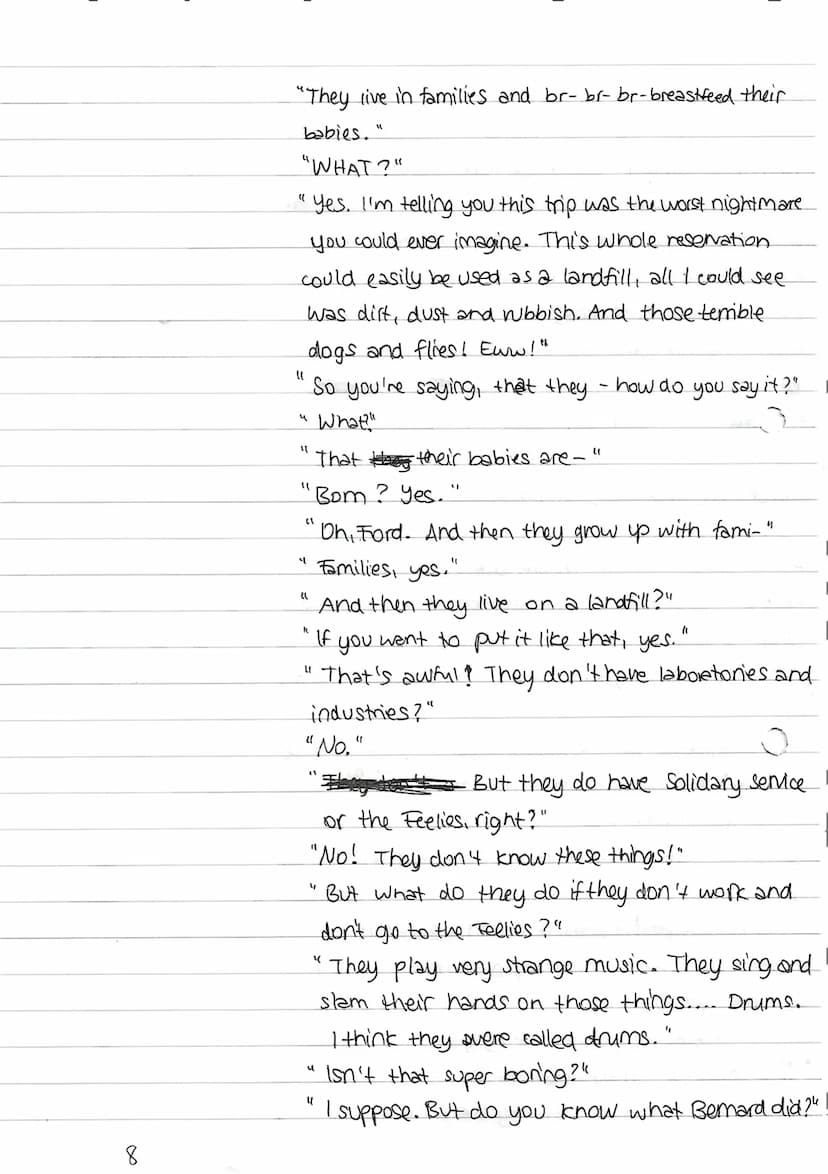 "They live in families and br- br- br-breastfeed their
babies."
"WHAT?"
"Yes. I'm telling you this trip was the worst nightmare
you could ever imagine. This whole reservation
could easily be used as a landfill, all I could see
was dirt, dust and rubbish. And those terrible
dogs and flies! Eww!"
"So you're saying, that they - how do you say it?"
"What?"
"That their babies are-"
"Born? Yes."
"Oh, Ford. And then they grow up with fami-"
"Families, yes."
"And then they live on a landfill?"
"If you want to put it like that, yes."
"That's awful! They don't have laboretories and
industries?"
"No."
"But they do have Solidary Service
or the Feelies, right?"
"No! They don't know these things!"
"But what do they do if they don't work and
don't go to the Feelies?"
"They play very strange music. They sing and
slam their hands on those things.... Drums.
I think they were called drums."
"Isn't that super boring?"
"I suppose. But do you know what Bernard did?"
8